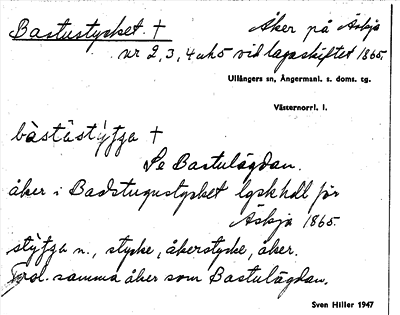 Bastustycket. † Åker på Äskja
nr 2, 3, 4 och 5 vid lagaskiftet 1865.
Ullångers sn, Ångermanl. s. doms. tg.
Västernorrl. l.
bàstustỳtja †
Se Bastulägdan.
åker i Badstugustycket lgskhdl för
Äskja 1865.
stỳtja n., stycke, åkerstycke, åker.
Trol. samma åker som Bastulägdan.
Sven Hiller 1947